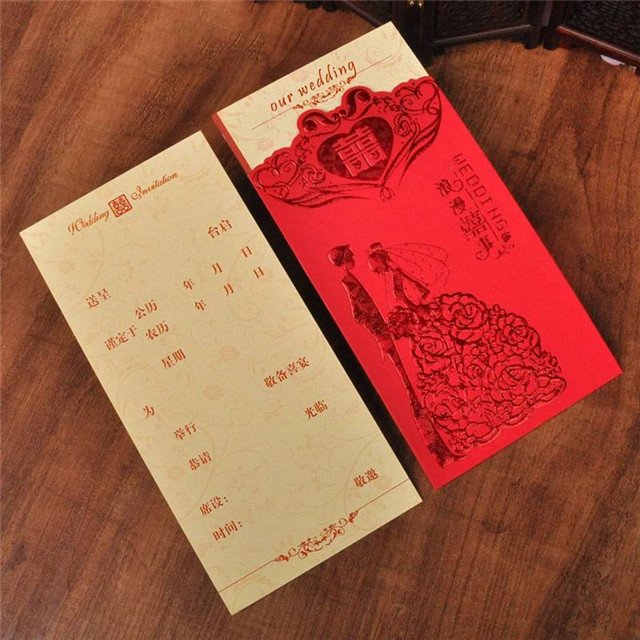 Wedding 囍 Invitation
送呈 台启
公历 年 月 日
谨定于 农历 年 月 日
星期
为 敬备喜宴
举行 光临
恭请
席设：
时间： 敬邀
our wedding
囍
WEDDING
浪漫囍事